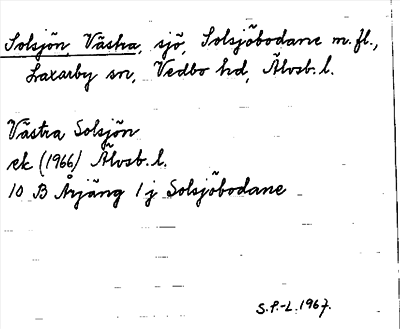 Solsjön, Västra, sjö, Solsjöbodane m.fl.,
Laxarby sn, Vedbo hd, Älvsb. l.
Västra Solsjön
ek (1966) Älvsb. l.
10 B Årjäng 1 j Solsjöbodane
S.P.-L. 1967.